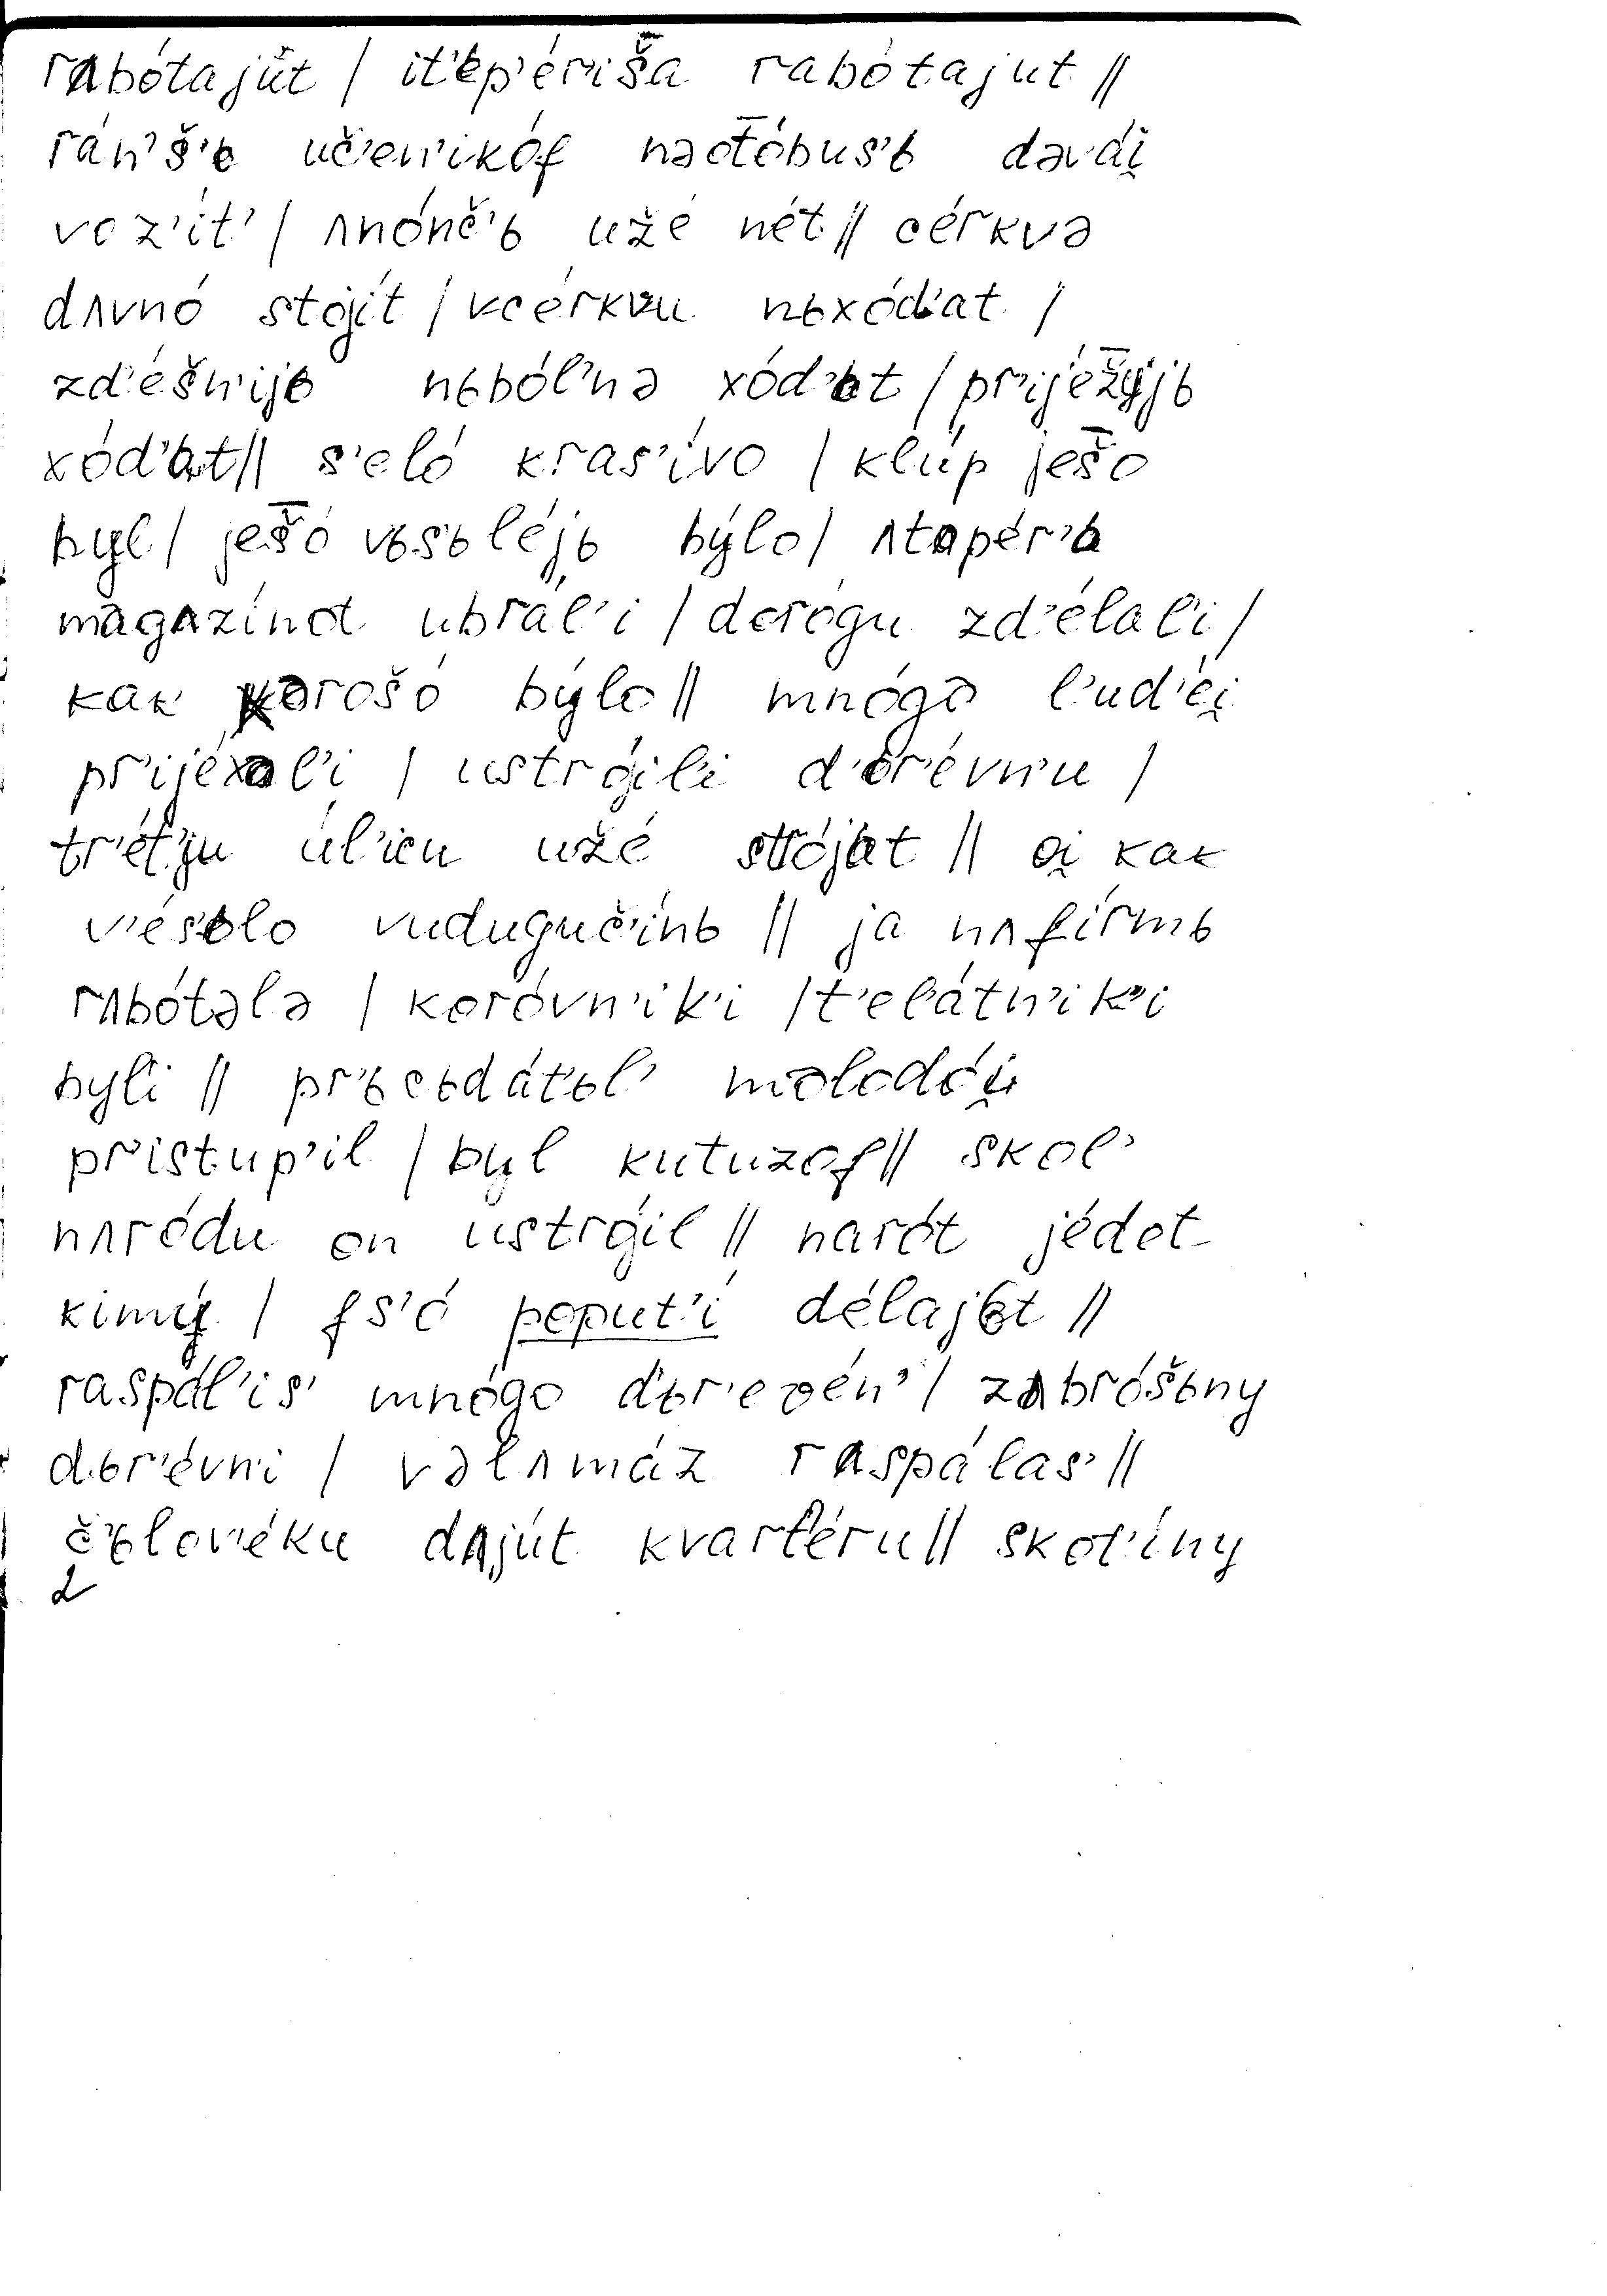 rʌbótajut / it'ьp'ér'iš̄a rabótajut //
rán'š'ь uč'en'ikóf nəot̄óbus'ь dəvái̯
voz'ít' / ʌnónč'ь užé nét // cérkvə
dʌvnó stojít / vcérkvu nьxód'at /
zd'éšn'ijь nьból'nə xód'ьt / pr'ijéž̄yjь
xód'ьt // s'eló kras'ívo / klúp ješ̄o
byl / ješ̄ó vьs'ьléjь býlo / ʌtəpér'ь
magʌzínot ubrál'i / dorógu zd'élal'i /
kak xərošó býlo // mnógə l'ud'éi̯
pr'ijéxəl'i / ustrójil'i d'ьr'évn'u /
tr'ét'ju úl'icu užé strójat // oi̯ kak
v'és'ьlo vudugučínь // ja nʌfírmь
rʌbótələ / koróvn'ik'i / t'elátn'ik'i
byl'i // pr'ьc'ьdát'ьl' molodói̯
pr'istup'il / byl kutuzof // skol'
nʌródu on ustrójil // narót jédot
kimý / fs'ó poput'í délajьt //
raspál'is' mnógo d'ьr'evén' / zʌbróšьny
dьr'évn'i / vəlʌmáz rʌspálas' //
č'ьlov'éku dʌjút kvart'éru // skot'íny
2